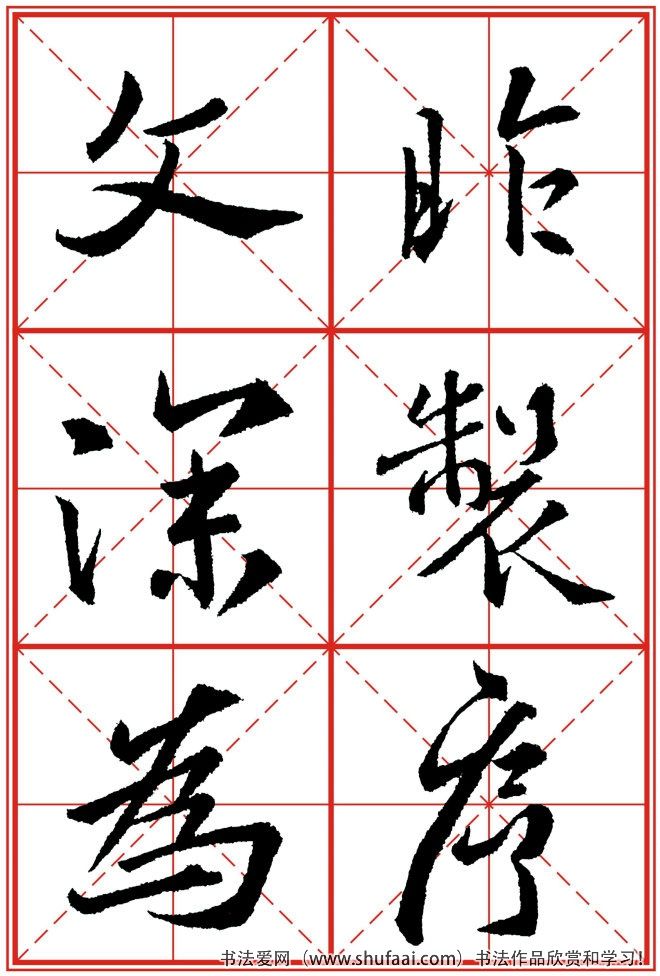 昨製序
文深為
书法爱网（www.shufaai.com）书法作品欣赏和学习！